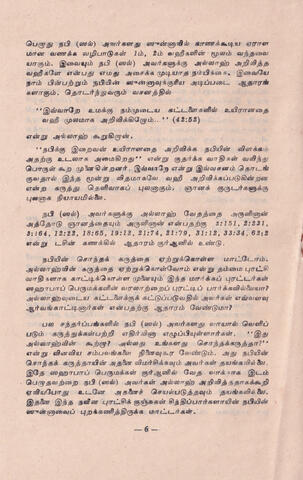 பெருது நபி (ஸல்) அவர்களது ஸுன்னாவில் காணக்கூடிய ஏராள
மான வணக்க வழிபாடுகள் 1ம், 2ம் வஹீகளின் மூலம் வந்தவை
யாகும். இவையும் நபி (ஸல்) அவர்களுக்கு அல்லாஹ் அறிவித்த
வஹீகளே என்பது எமது அசைக்க முடியாத நம்பிக்கை. இவையே
நாம் பின்பற்றும் நபியின் ஸுன்னாவுக்குரிய அடிப்படை ஆதாரங்
களாகும். தொடர்ந்துவரும் வசனத்தில்
''இவ்வாறே உமக்கு நம்முடைய கட்டளைகளில் உயிரானதை
வஹீ மூலமாக அறிவிக்கிறோம்...'' (42:52)
என்று அல்லாஹ் கூறுகிறான்.
''நபிக்கு இறைவன் உயிரானதை அறிவிக்க நபியின் விளக்கம்
அதற்கு உடலாக அமைகிறது'' என்று குதர்க்க வாதிகள் வளிந்து
பொருள் கூற முனைகின்றனர். இவ்வாறே என்று இவ்வசனம் தொடங்
குவதால் இந்த மூன்று விதமாகவே வஹீ அறிவிக்கப்படுகின்றன
என்ற கருத்து தெளிவாகப் புலனாகும். ஞானக் குருடர்களுக்கு
புலனாக நியாயமில்லை.
நபி (ஸல்) அவர்களுக்கு அல்லாஹ் வேதத்தை அருளினான்
அத்தோடு ஞானத்தையும் அருளினான் என்பதற்கு 2:151, 2:231,
3:164, 12:22, 15:65, 19:12, 21:74, 21:79, 31:12, 33:34, 62:2
என்று டசின் கணக்கில் ஆதாரம் குர்ஆனில் உண்டு.
நபியின் சொந்தக் கருத்தை ஏற்றுக்கொள்ள மாட்டோம்.
அல்லாஹ்வின் கருத்தை ஏற்றுக்கொள்வோம் என்று தம்மை புரட்சி
வாதிகளாக காட்டிக்கொள்ள முனையும் இந்த மார்க்கப் புரட்டர்கள்
ஸஹாபாப் பெருமக்களின் வரலாற்றைப் புரட்டிப் பார்க்கவில்லையா?
அல்லாஹ்வுடைய கட்டளைக்குக் கட்டுப்படுவதில் அவர்கள் எவ்வளவு
ஆர்வங்காட்டினார்கள் என்பதற்கு ஆதாரம் வேண்டுமா?
பல சந்தர்ப்பங்களில் நபி (ஸல்) அவர்களது வாயால் வெளிப்
படும் கருத்துக்கள்பற்றி எதிர்வினா எழுப்பியுள்ளார்கள். ''இது
அல்லாஹ்வின் கூற்று? அல்லது உங்களது சொந்தக்கருத்தா?''
என்று வினவிய சம்பவங்களை நினைவூட்ட வேண்டும். அது நபியின்
சொந்தக் கருத்தாயின் அதனை விமர்சிக்கவும் அவர்கள் தயங்கவில்லை.
இதே ஸஹாபாப் பெருமக்கள் குர்ஆனில் வேத வாக்காக இடம்
பெறாதவற்றை நபி (ஸல்) அவர்கள் அல்லாஹ் அறிவித்ததாகக்கூறி
ஏவியபோது உடனே அதனைச் செயல்படுத்தவும் தயங்கவில்லை.
இதனை இந்த நவீன புரட்சிக் குஞ்சுகள் சிந்திப்பார்களாயின் நபியின்
ஸுன்னாவைப் புறக்கணித்திருக்க மாட்டார்கள்.
— 6 —